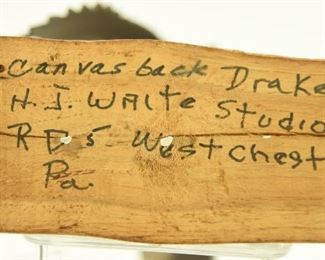 Canvasback Drake
H.J. White Studio
RD 5 West Chest
Pa.